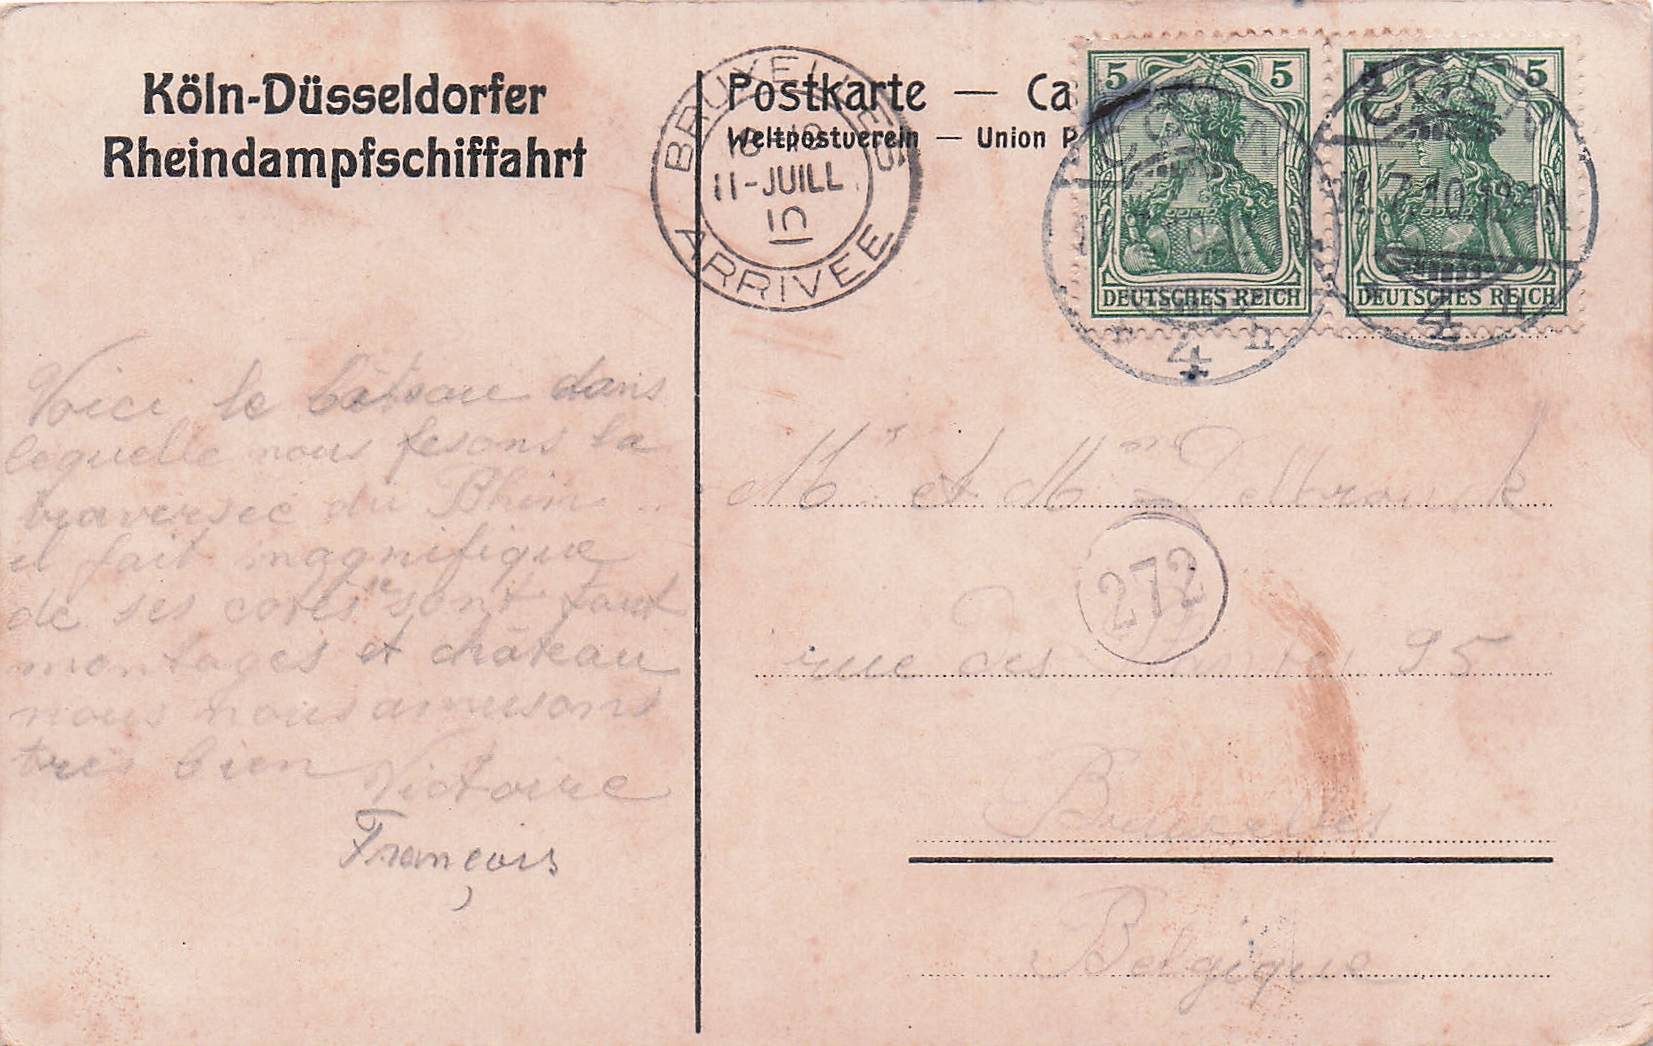 Köln-Düsseldorfer
Rheindampfschiffahrt
Voici le bâteau dans
lequelle nous fesons la
traversée du Rhin
il fait magnifique
de ses cotés sont tout
montages et château
nous nous amusons
très bien Victoire
François
BRUXELLES
11-JUILL
10
ARRIVEE
Postkarte — Ca
Weltpostverein — Union P
5 5
DEUTSCHES REICH
5
DEUTSCHES REICH
7.10
4 n
4 n
Mr et Mme
272
rue des 95
Bruxelles
Belgique